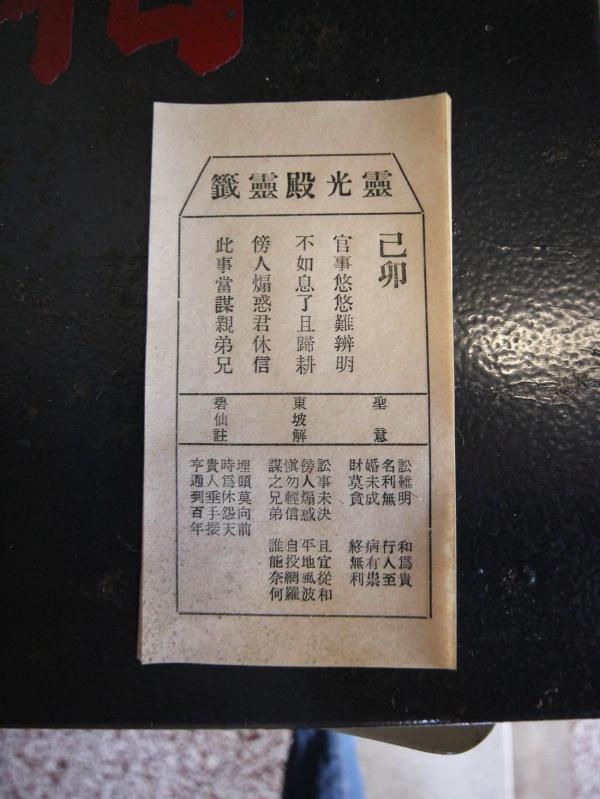 靈光殿靈籤
己卯
官事悠悠難辨明
不如息了且歸耕
傍人煽惑君休信
此事當謀親弟兄
聖意
訟難明 和為貴
名利無 行人至
婚未成 病有祟
財莫貪 終無利
東坡解
訟事未決 且宜從和
傍人煽惑 平地風波
愼勿輕信 自投網羅
謀之兄弟 誰能奈何
碧仙註
埋頭莫向前
時為休怨天
貴人垂手接
亨通到百年